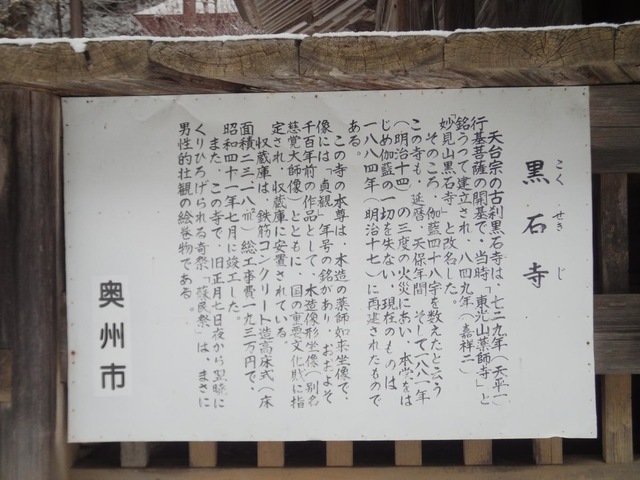 黒石寺
こくせきじ
天台宗の古刹黒石寺は、七二九年（天平一）
行基菩薩の開基で、当時「東光山薬師寺」と
銘うって建立され、八四九年（嘉祥二）
「妙見山黒石寺」と改名した。
そのころ、伽藍四十八宇を数えたと云う
この寺も、延暦、天保年間、そして一八八一年
（明治十四）の三度の火災にあい、本堂をは
じめ伽藍の一切を失ない、現在のものは、
一八八四年（明治十七）に再建されたもので
ある。
この寺の本尊は、木造の薬師如来坐像で、
像には「貞観」年号の銘があり、おおよそ
千百年前の作品として、木造僧形坐像（別名
慈覚大師像）とともに、国の重要文化財に指
定され、収蔵庫に安置されている。
収蔵庫は、鉄筋コンクリート造高床式（床
面積二三・一八㎡）総工事費一九三万円で、
昭和四十一年七月に竣工した。
また、この寺で、旧正月七日夜から翌暁に
くりひろげられる奇祭「蘇民祭」は、まさに
男性的壮観の絵巻物である。
奥州市